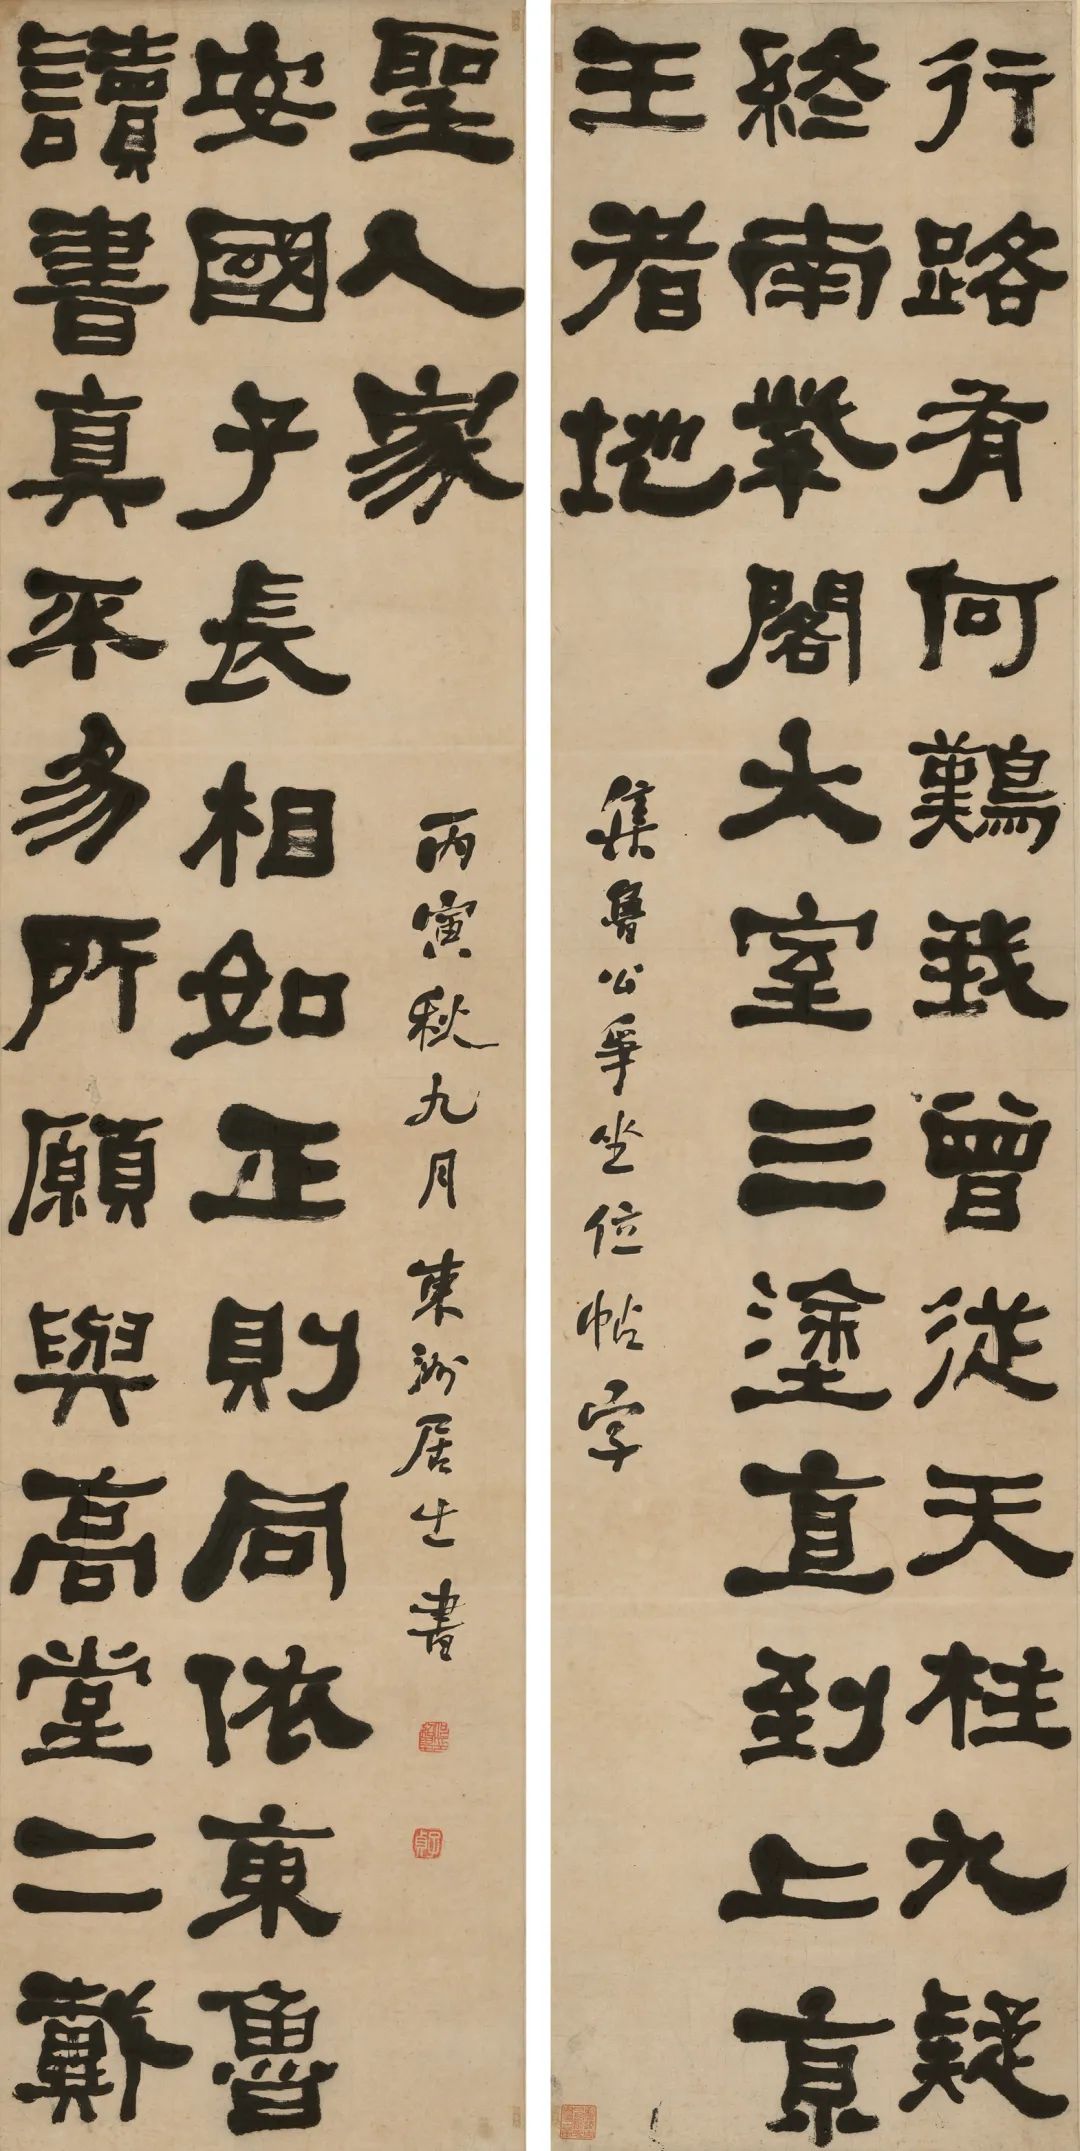 行路有何難我曾從天柱九疑
終南閣大室三塗直到上京
王者地
集魯公爭坐位帖字
讀書真平易所願與高堂二戴
安國子長相如正則同依東魯
聖人家
丙寅秋九月東洲居士書
何紹基印
子貞